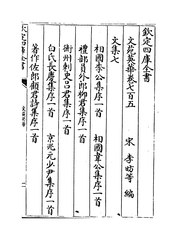 欽定四庫全書
文苑英華卷七百五
宋 李昉等 編
文集七
相國李公集序一首
相國韋公集序一首
禮部員外郎柳君集序一首
衡州刺史呂君集序一首
白氏長慶集序一首
京兆元少尹集序一首
著作佐郎顧君詩集序一首